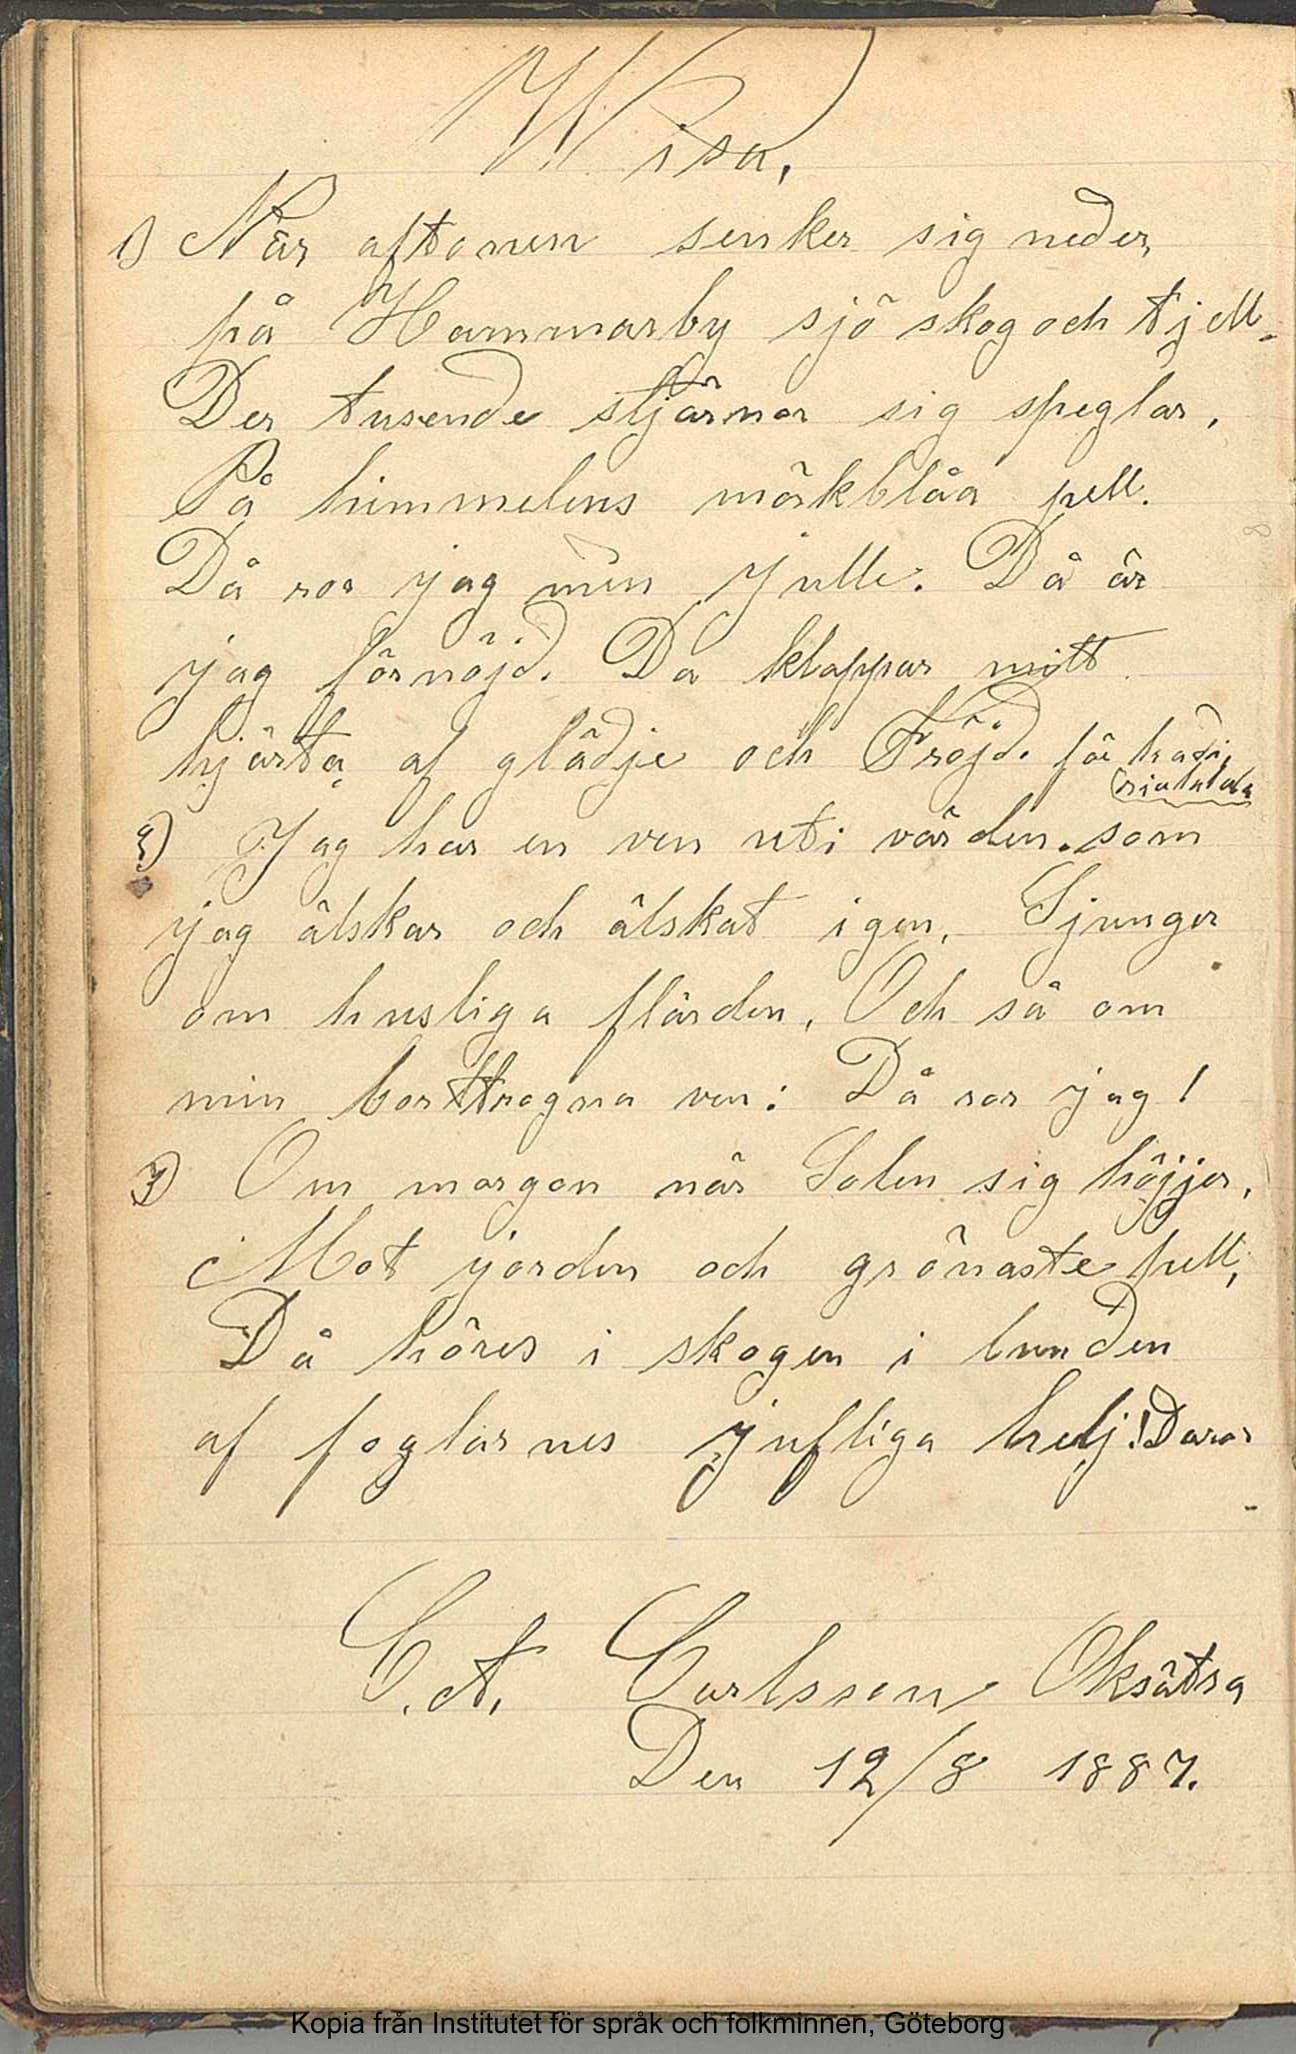 Wisa,
1) När aftonen senker sig neder,
på Hammarby sjö skog och tjell.
Der tusende stjärnor sig speglar,
På himmelens mörkblåa pell.
Då ror jag min Julle. Då är
jag förnöjd. Da klappar mitt
hjärta af glädje och Fröjd. för hadi,
rialala
2) Jag har en ven uti värden. som
jag älskar och älskat igen, Sjunger
om husliga flärden, Och så om
min borttrogna ven: Då ror jag!
3) Om morgon när Solen sig höjjer,
Mot jorden och grönaste pell,
Då höres i skogen i lunden
af foglarnes jufliga helj! Daror
C. A. Carlsson Oksätra
Den 12/8 1887.
Kopia från Institutet för språk och folkminnen, Göteborg